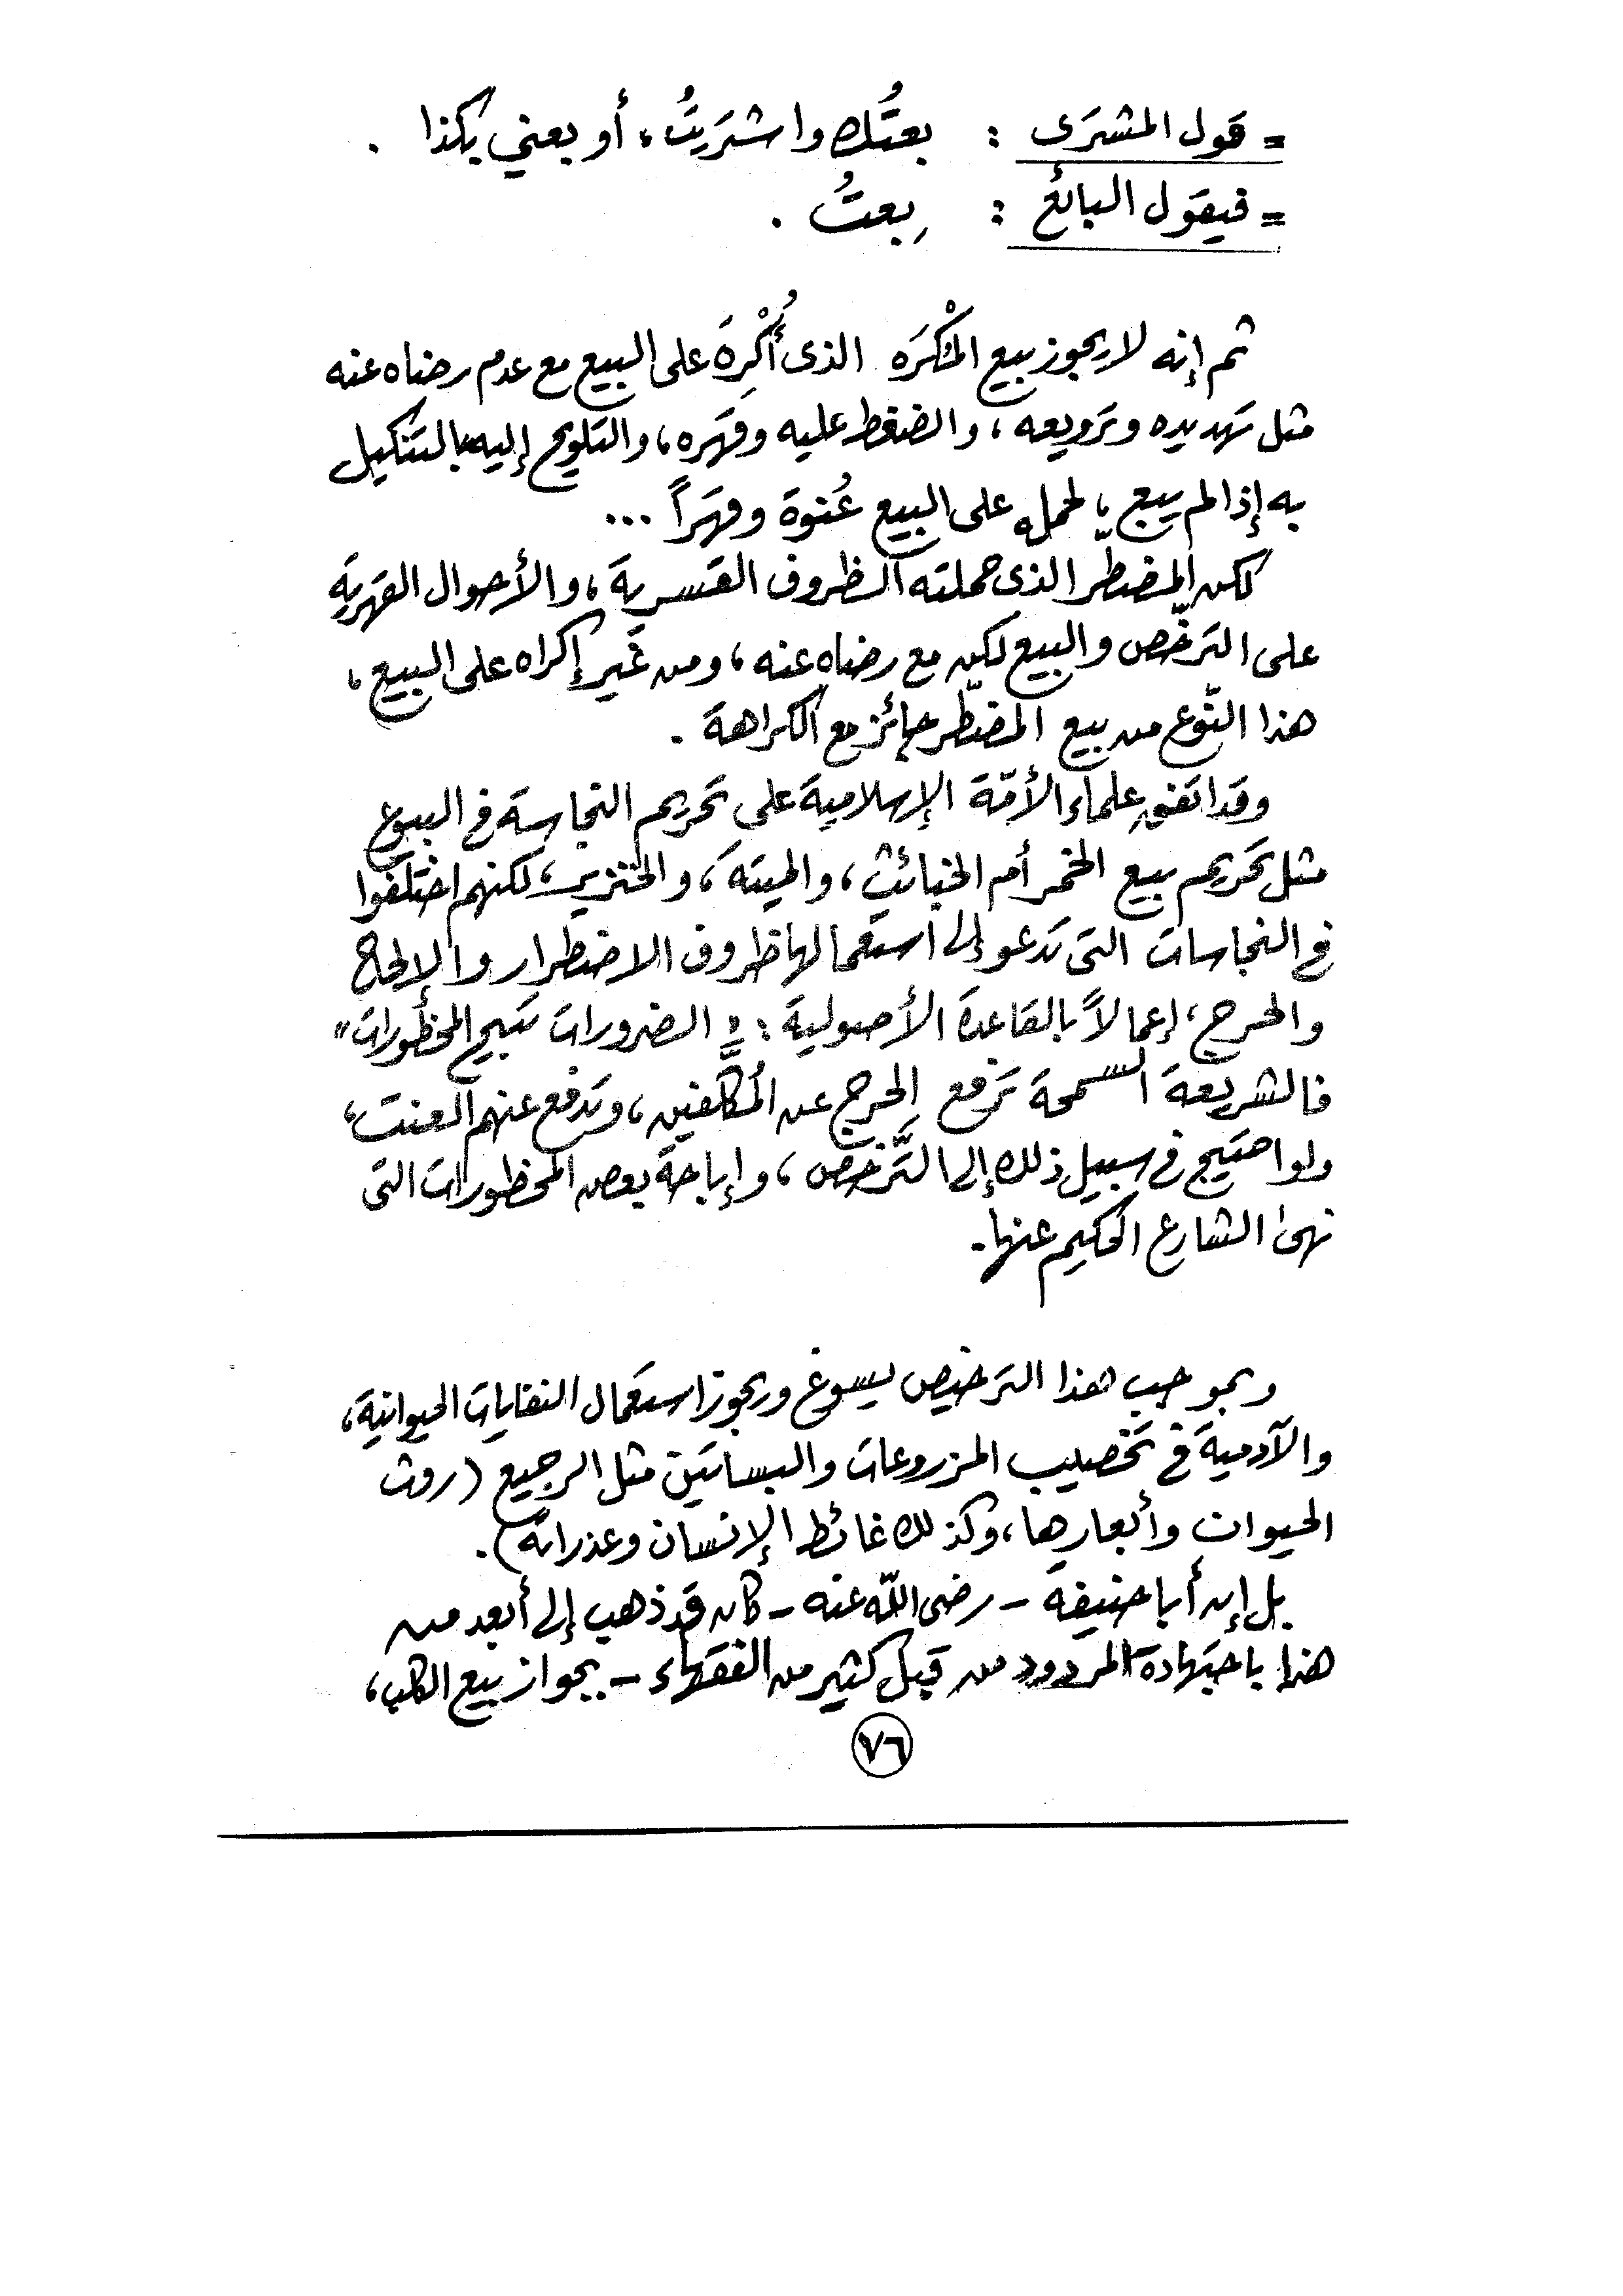 = قول المشترى : بعتُك واشتريتُ، أو بعني بكذا .
= فيقول البائع : بِعتُ .
ثم إنه لا يجوز بيع المُكْرَه الذى أُكْرِهَ على البيع مع عدم رضاه عنه
مثل تهديده وترويعه، والضغط عليه وقهره، والتلويح إليه بالتنكيل
به إذا لم يبع، لحمله على البيع عُنوة وقهراً ...
لكن المضطر الذى حملته الظروف القسرية، والأحوال القهرية
على الترخّص والبيع لكن مع رضاه عنه، ومن غير إكراه على البيع،
هذا النّوع من بيع المضطّر جائز مع الكراهة .
وقد اتفق علماء الأمّة الإسلامية على تحريم النجاسة فى البيوع
مثل تحريم بيع الخمر أم الخبائث، والميتة، والخنزير، لكنهم اختلفوا
فى النجاسات التى تدعو إلى استعمالها ظروف الاضطرار والإلحاح
والحرج، إعمالاً بالقاعدة الأصولية : " الضرورات تبيح المحظورات "
فالشريعة السمحة ترفع الحرج عن المُكلَّفين، وتدفع عنهم العنت،
ولو احتيج فى سبيل ذلك إلى التَّرخص، وإباحة بعض المحظورات التى
نهى الشارع الحكيم عنها.
وبموجب هذا الترخيص يسوغ ويجوز استعمال النفايات الحيوانية،
والآدمية فى تخصيب المزروعات والبساتين مثل الرجيع (روث
الحيوان وأبعارها، وكذلك غائط الإنسان وعذراته).
بل إن أبا حنيفة - رضى اللّه عنه - كان قد ذهب إلى أبعد من
هذا باجتهاده المردود من قِبل كثير من الفقهاء - بجواز بيع الكلب،
٧٦